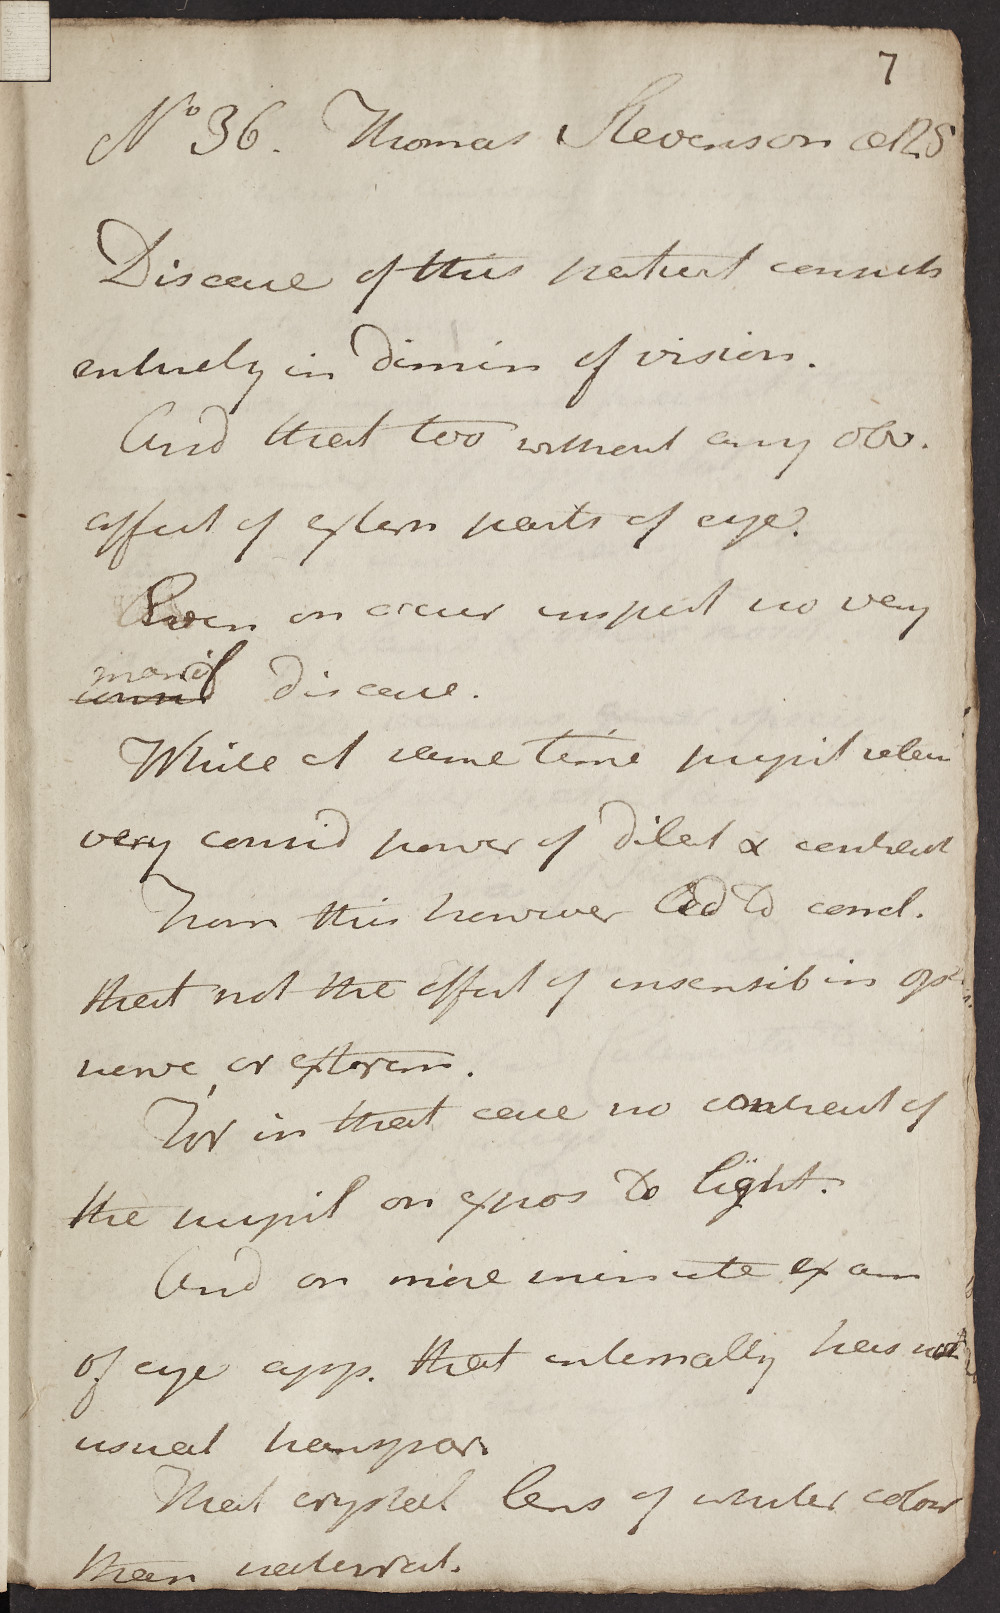 7
No 36. Thomas Stevenson æ 28
Disease of this patient consists
entirely in dimin of vision.
And that too without any obv.
affect of extern parts of eye.
Even on accur inspect no very
manif disease.
While at same time pupil retain
very consid power of dilat & contract
From this however led to concl.
that not the effect of insensib in opt
nerve, or extorem.
For in that case no contract of
the pupil on expos to light.
And on more minute exam
of eye app. that internally has not
usual transpar.
That crystal lens of whiter colour
than natural.